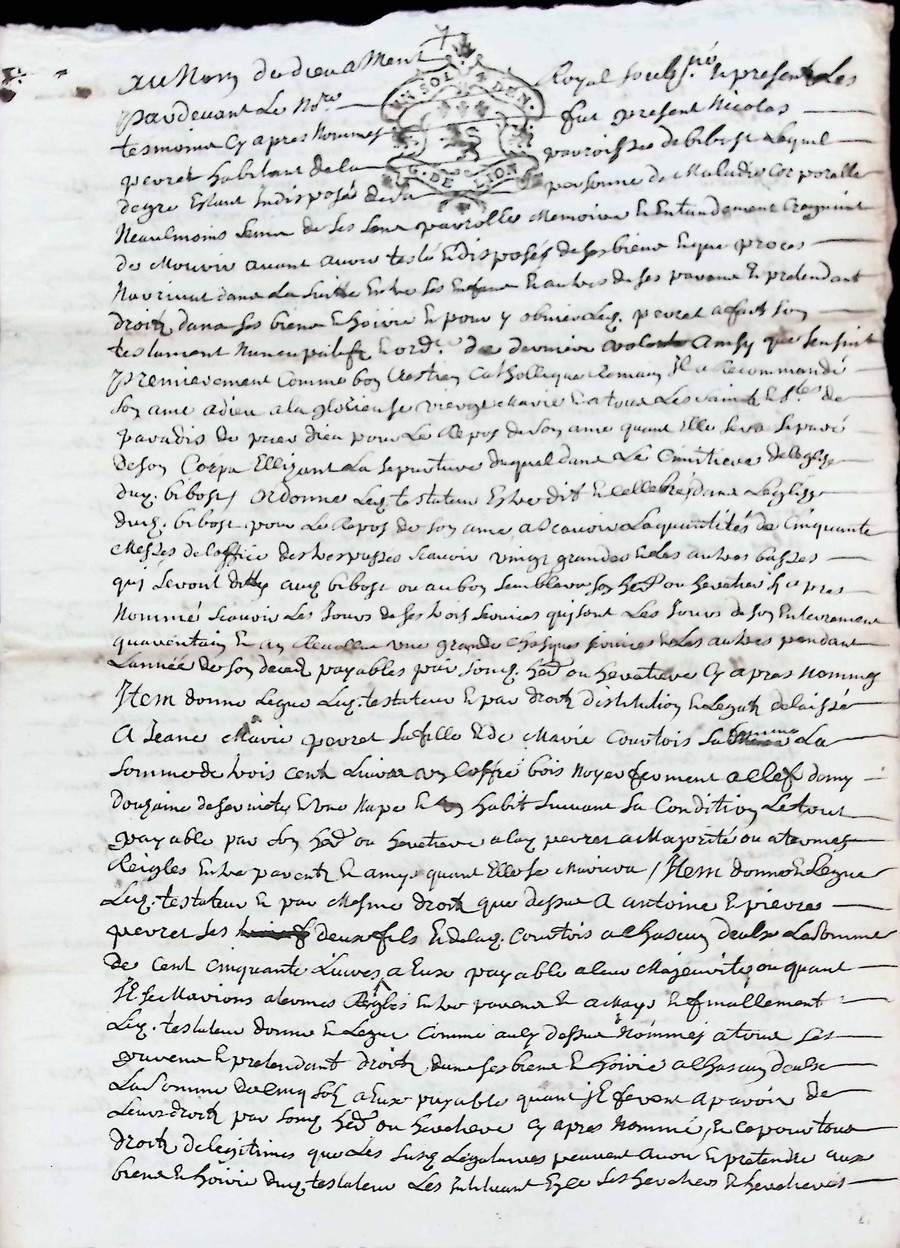 Au Nom de dieu a Ment
UN SOL 4 DEN.
G. DE LION
Royal soubs.né & presents Les
Pardevant Le No.re
fut present Nicolas
tesmoins Cy apres Nommes
parroisse de bibost Lequel
peyret habitant de la
personne de Maladie Corporalle
degre Estant Indisposée de sa
Neaulmoins sain de ses sens parrolle Memoire & Entandement Craignant
de Mourir avant avoir testé & disposés de ses biens & que proces
Navrivat dans La suitte Entre ses Enfans & autres de ses parens & pretendant
droits dans ses biens & hoirie & pour y obvier Led. peyret a fait son
testament Nuncupatif & ord.re de derniere volonté Ainsy que sensuit
Premierement Comme bon Crestien Catholique Romain Il a Recommandé
son ame a dieu a la glorieuse vierge Marie & a tous Les saints & s.tes de
paradis de prier dieu pour Le Repos de son ame quant Elle sera separé
de son Corps Ellisant La sepulture duquel dans Le Cimetiere de leglise
dud. bibost / ordonne Led. testateur Estre dit & cellebres dans Leglise
dud. bibost pour Le Repos de son ame a scavoir La quantités de Cinquante
Messes de loffice des trespasses scavoir vingt grandes & les autres basses
qui seront dittes aud. bibost ou au bon semblers son her. ou heretiere Cy apres
Nommé scavoir Les Jours de ses trois services qui sont Les Jours de son Enterrement
quarantain & an Revollu une grande Chasque service & Les autres pendant
Lannée de son deced payables par sond. her. ou heretiere Cy apres Nommes
Item donne Legue Led. testateur & par droit distitution & Legat delaissé
A Jeane Marie peyret sa fille & de Marie Courtois sa femme La
somme de trois cent Livres un Coffre bois Noyer fermant a clef demy
douzaine de serviete & une Nape & un habit suivant sa Condition Le tout
payable par son her. ou heretiere a lad. peyret a Majorité ou a termes
Reigles Entre parents & amys quant Elle se Mariera / Item donne & Legue
Led. testateur & par Mesme droit que dessus A antoine & pierre
peyret ses deux fils & de lad. Courtois a Chascun deulx La somme
de cent Cinquante Livres a Eux payable a leur Majeurité ou quant
Il se Marions a termes Reigles Entre parens & a Mays & finallement
Led. testateur donne & Legue Comme aud dessus Nommes a tous ses
parens & pretendant droits dans ses biens & hoirie a Chascun deulx
La somme de Cinq sols a Eux payable quant Il feront apavoir de
Leurs droits par sond. her. ou heretiere Cy apres Nommé & ce pour tous
droits de legitimes que Les susd. Legataires peuvent avoir & pretendre aux
biens & hoirie dud. testateur Les Instituant ses heretiers & heretieres